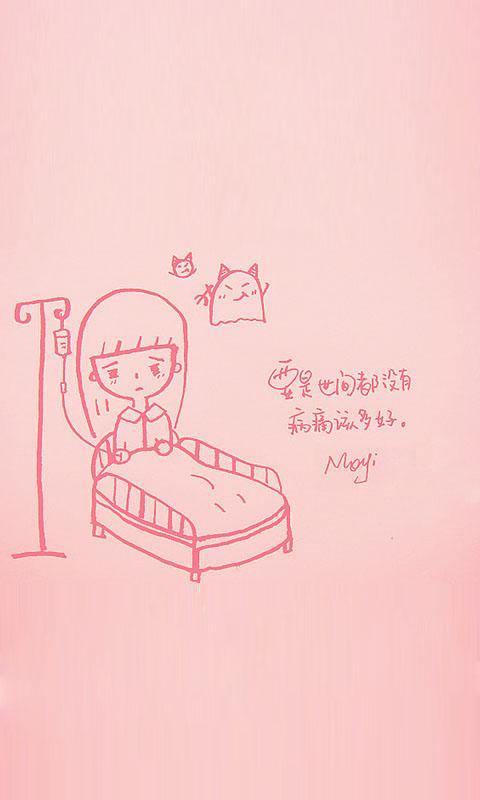 要是世间都没有
病痛该多好。
Moyi